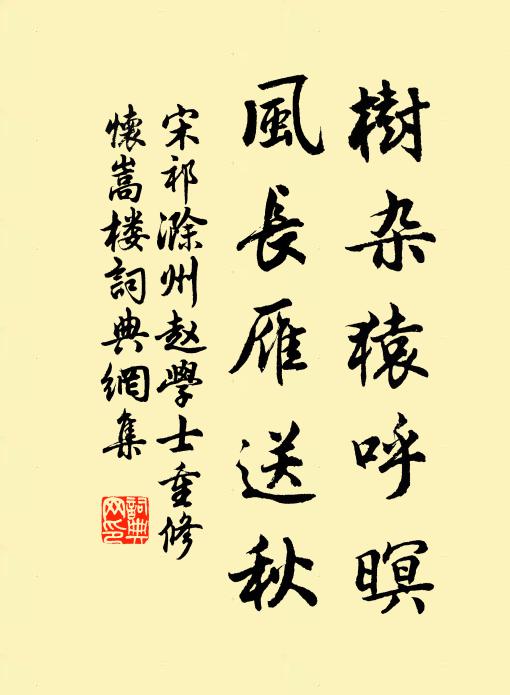 樹杂猿呼暝
風長雁送秋
宋祁滁州赵學士重修
懷嵩楼詞典網集
詞典网印